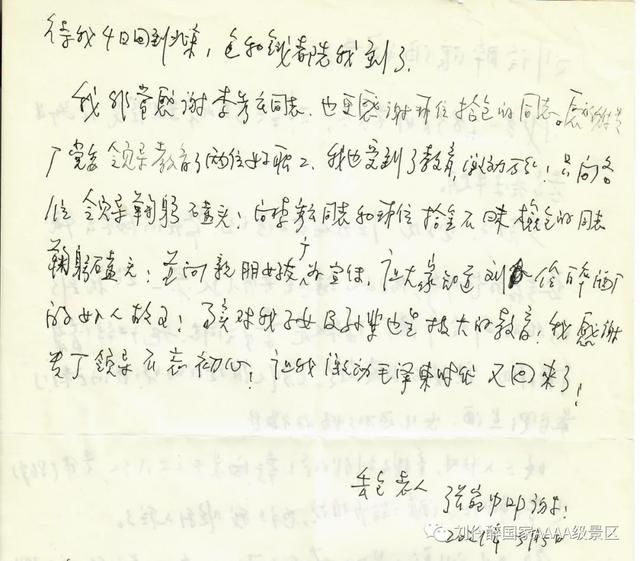 待我4日回到北京,包和钱都先我到了。
我非常感谢李芳玄同志,也更感谢那位拾包的同志。感谢贵
厂党委领导教育了两位好职工,我也受到了教育,激动万分!只向各
位领导鞠躬磕头!向李同志和那位拾金不昧捡包的同志
鞠躬磕头!并向亲朋好友广为宣传,让大家知道刘伶醉酒厂
的好人故事!这对我子女及孙辈也是极大的教育!我感谢
贵厂领导不忘初心!让我激动毛泽东时代又回来了!
丢包老人 张叩谢!
2021年5月5日
刘伶醉国家AAAA级景区